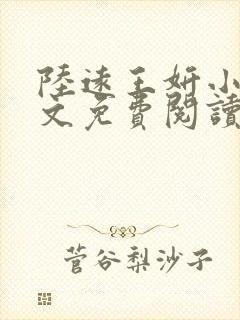 陸遠王妍小
文免費閱讀
菅谷梨沙子